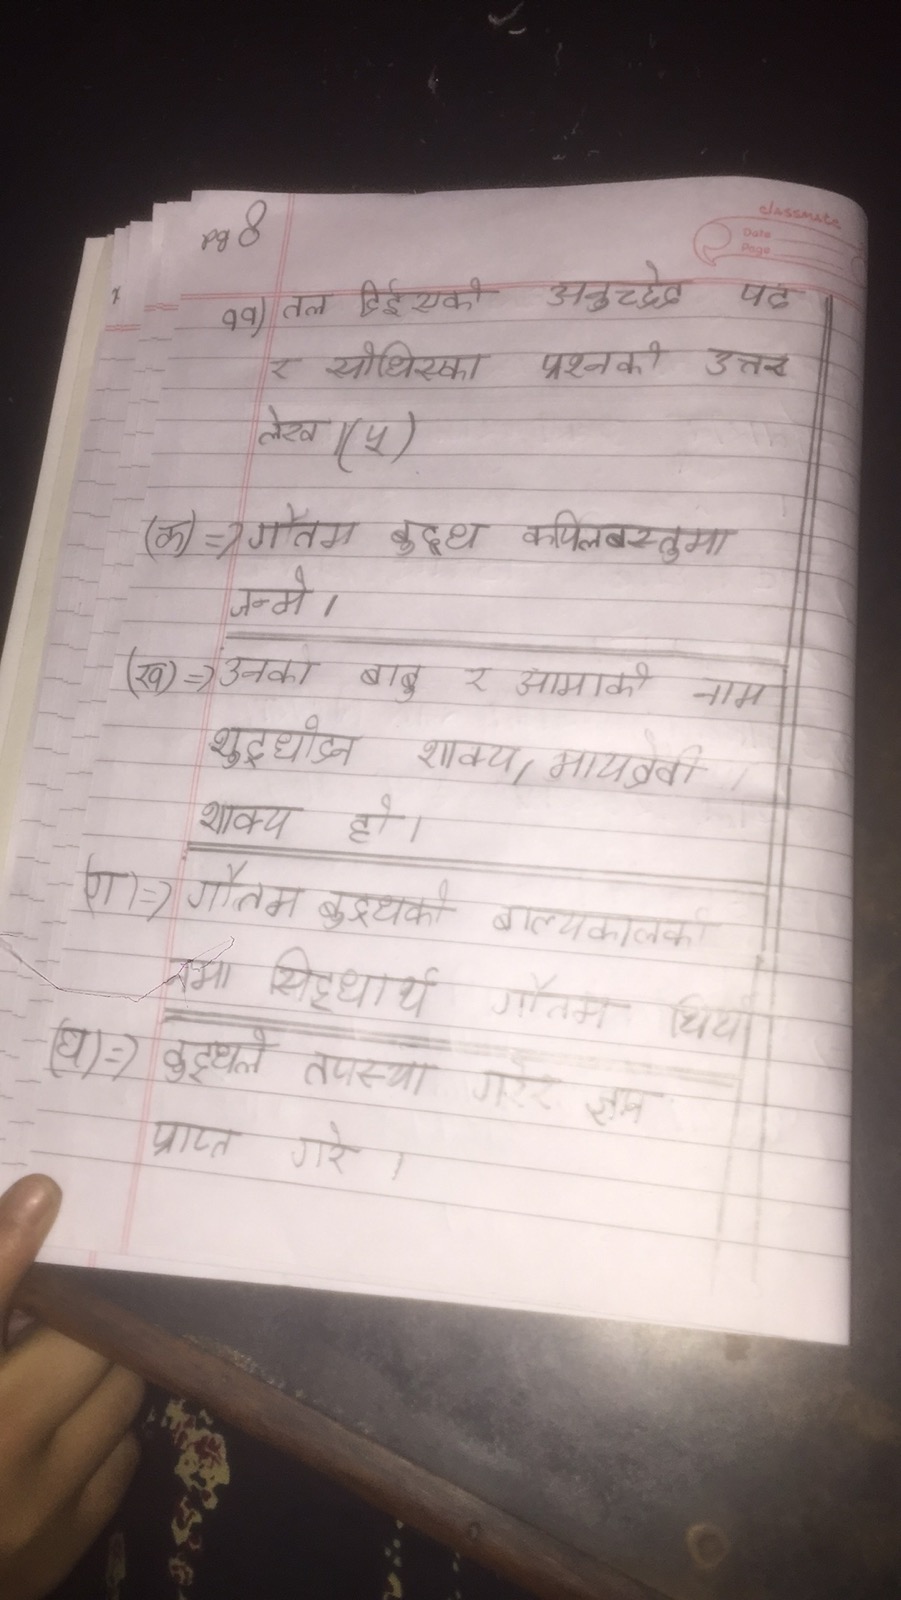 pg 8
classmate
Date
Page
११) तल दिईएको अनुच्छेद पढ
र सोधिएका प्रश्नको उत्तर
लेख।(५)
(क)=> गौतम बुद्ध कपिलबस्तुमा
जन्मे।
(ख)=> उनका बाबु र आमाको नाम
शुद्धोदन शाक्य, मायादेवी
शाक्य हो।
(ग)=> गौतम बुद्धको बाल्यकालको
नमा सिद्धार्थ गौतम थियो
(घ)=> बुद्धले तपस्या गरेर ज्ञान
प्राप्त गरे।